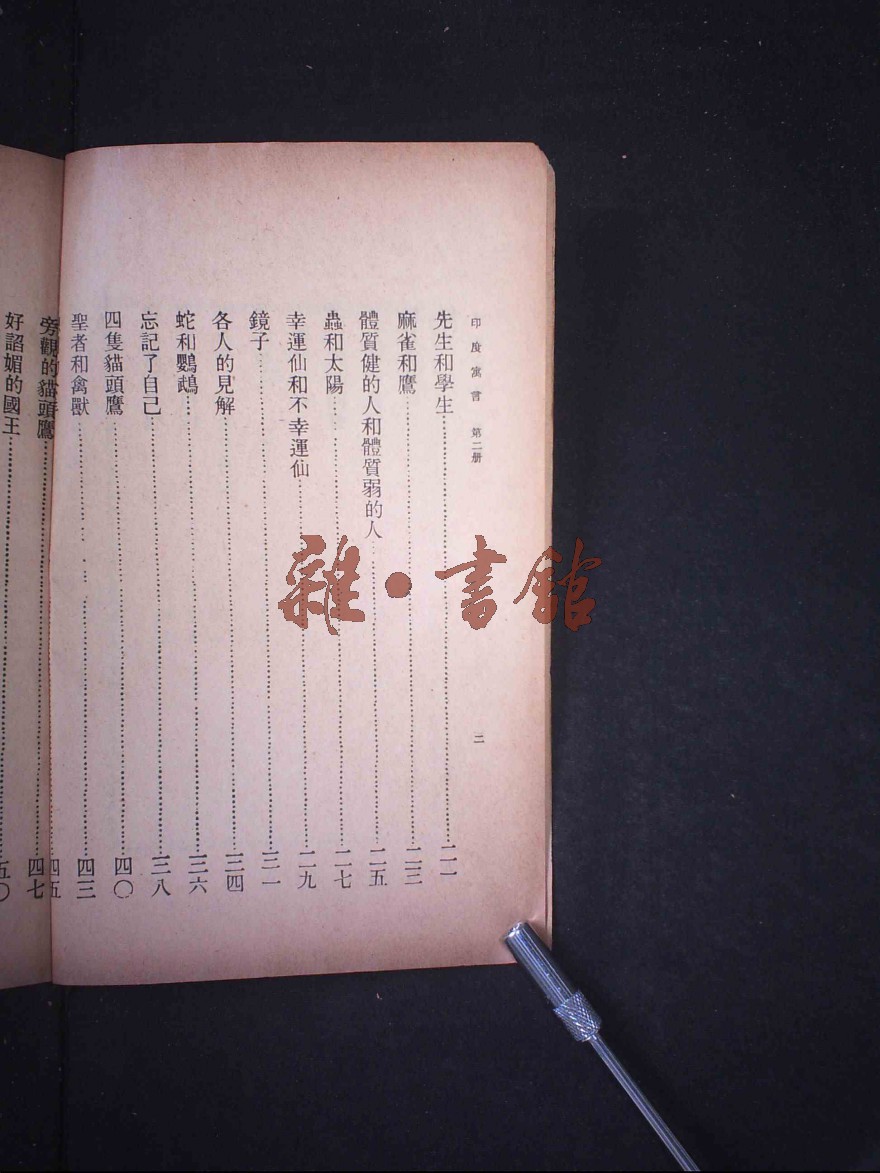 印度寓言 第二册 二
先生和學生……二一
麻雀和鷹……二三
體質健的人和體質弱的人……二五
蟲和太陽……二七
幸運仙和不幸運仙……二九
鏡子……三一
各人的見解……三四
蛇和鸚鵡……三六
忘記了自己……三八
四隻貓頭鷹……四〇
聖者和禽獸……四三
四五
旁觀的貓頭鷹……四七
好諂媚的國王……五〇
雜·書館